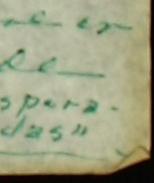 er
de
spera-
das"